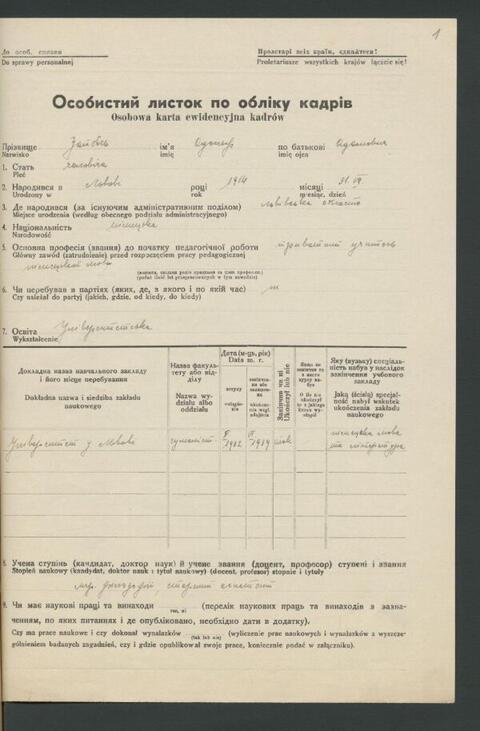 1
До особ. справи
Do sprawy personalnej
Пролетарі всіх країн, єднайтеся!
Proletariusze wszystkich krajów łączcie się!
Особистий листок по обліку кадрів
Osobowa karta ewidencyjna kadrów
Прізвище ім'я по батькові Адамович
Nazwisko imię imię ojca
1. Стать чоловіча
Płeć
2. Народився в Львові році 1914 місяці 31. VII.
Urodzony w rok miesiąc, dzień
3. Де народився (за існуючим адміністративним поділом) Львівська область
Miejsce urodzenia (według obecnego podziału administracyjnego)
4. Національність німецька
Narodowość
5. Основна професія (звання) до початку педагогічної роботи приватний учитель
Główny zawód (zatrudnienie) przed rozpoczęciem pracy pedagogicznej
німецької мови
6. Чи перебував в партіях (яких, де, з якого і по якій час) ні
Czy należał do partyj (jakich, gdzie, od kiedy, do kiedy)
7. Освіта Університетська
Wykształcenie
Докладна назва навчального закладу
і його місце перебування
Dokładna nazwa i siedziba zakładu
naukowego
Назва факуль-
тету або від-
ділу
Nazwa wy-
działu albo
oddziału
Дата (м-ць, рік)
Data m. r.
вступу
Закінчив чи ні
Ukończył lub nie
Яку (вузьку) спеціаль-
ність набув у наслідок
закінчення учбового
закладу
Jaką (ścisłą) specjal-
ność nabył wskutek
ukończenia zakładu
naukowego
Університет у Львові гуманіст. 1932 1939 німецька мова
та література
8. Учена ступінь (кандидат, доктор наук) й учене звання (доцент, професор) ступені і звання
Stopień naukowy (kandydat, doktor nauk i tytuł naukowy) (docent, profesor) stopnie i tytuły
маг. філософії, старший асистент
9. Чи має наукові праці та винаходи (перелік наукових праць та винаходів в зазна-
так, ні
ченням, по яких питаннях і де опубліковано, необхідно дати в додатку).
Czy ma prace naukowe i czy dokonał wynalazków (wyliczenie prac naukowych i wynalazków z wyszcze-
(tak lub nie)
gólnieniem badanych zagadnień, czy i gdzie opublikował swoje prace, koniecznie podać w załączniku).